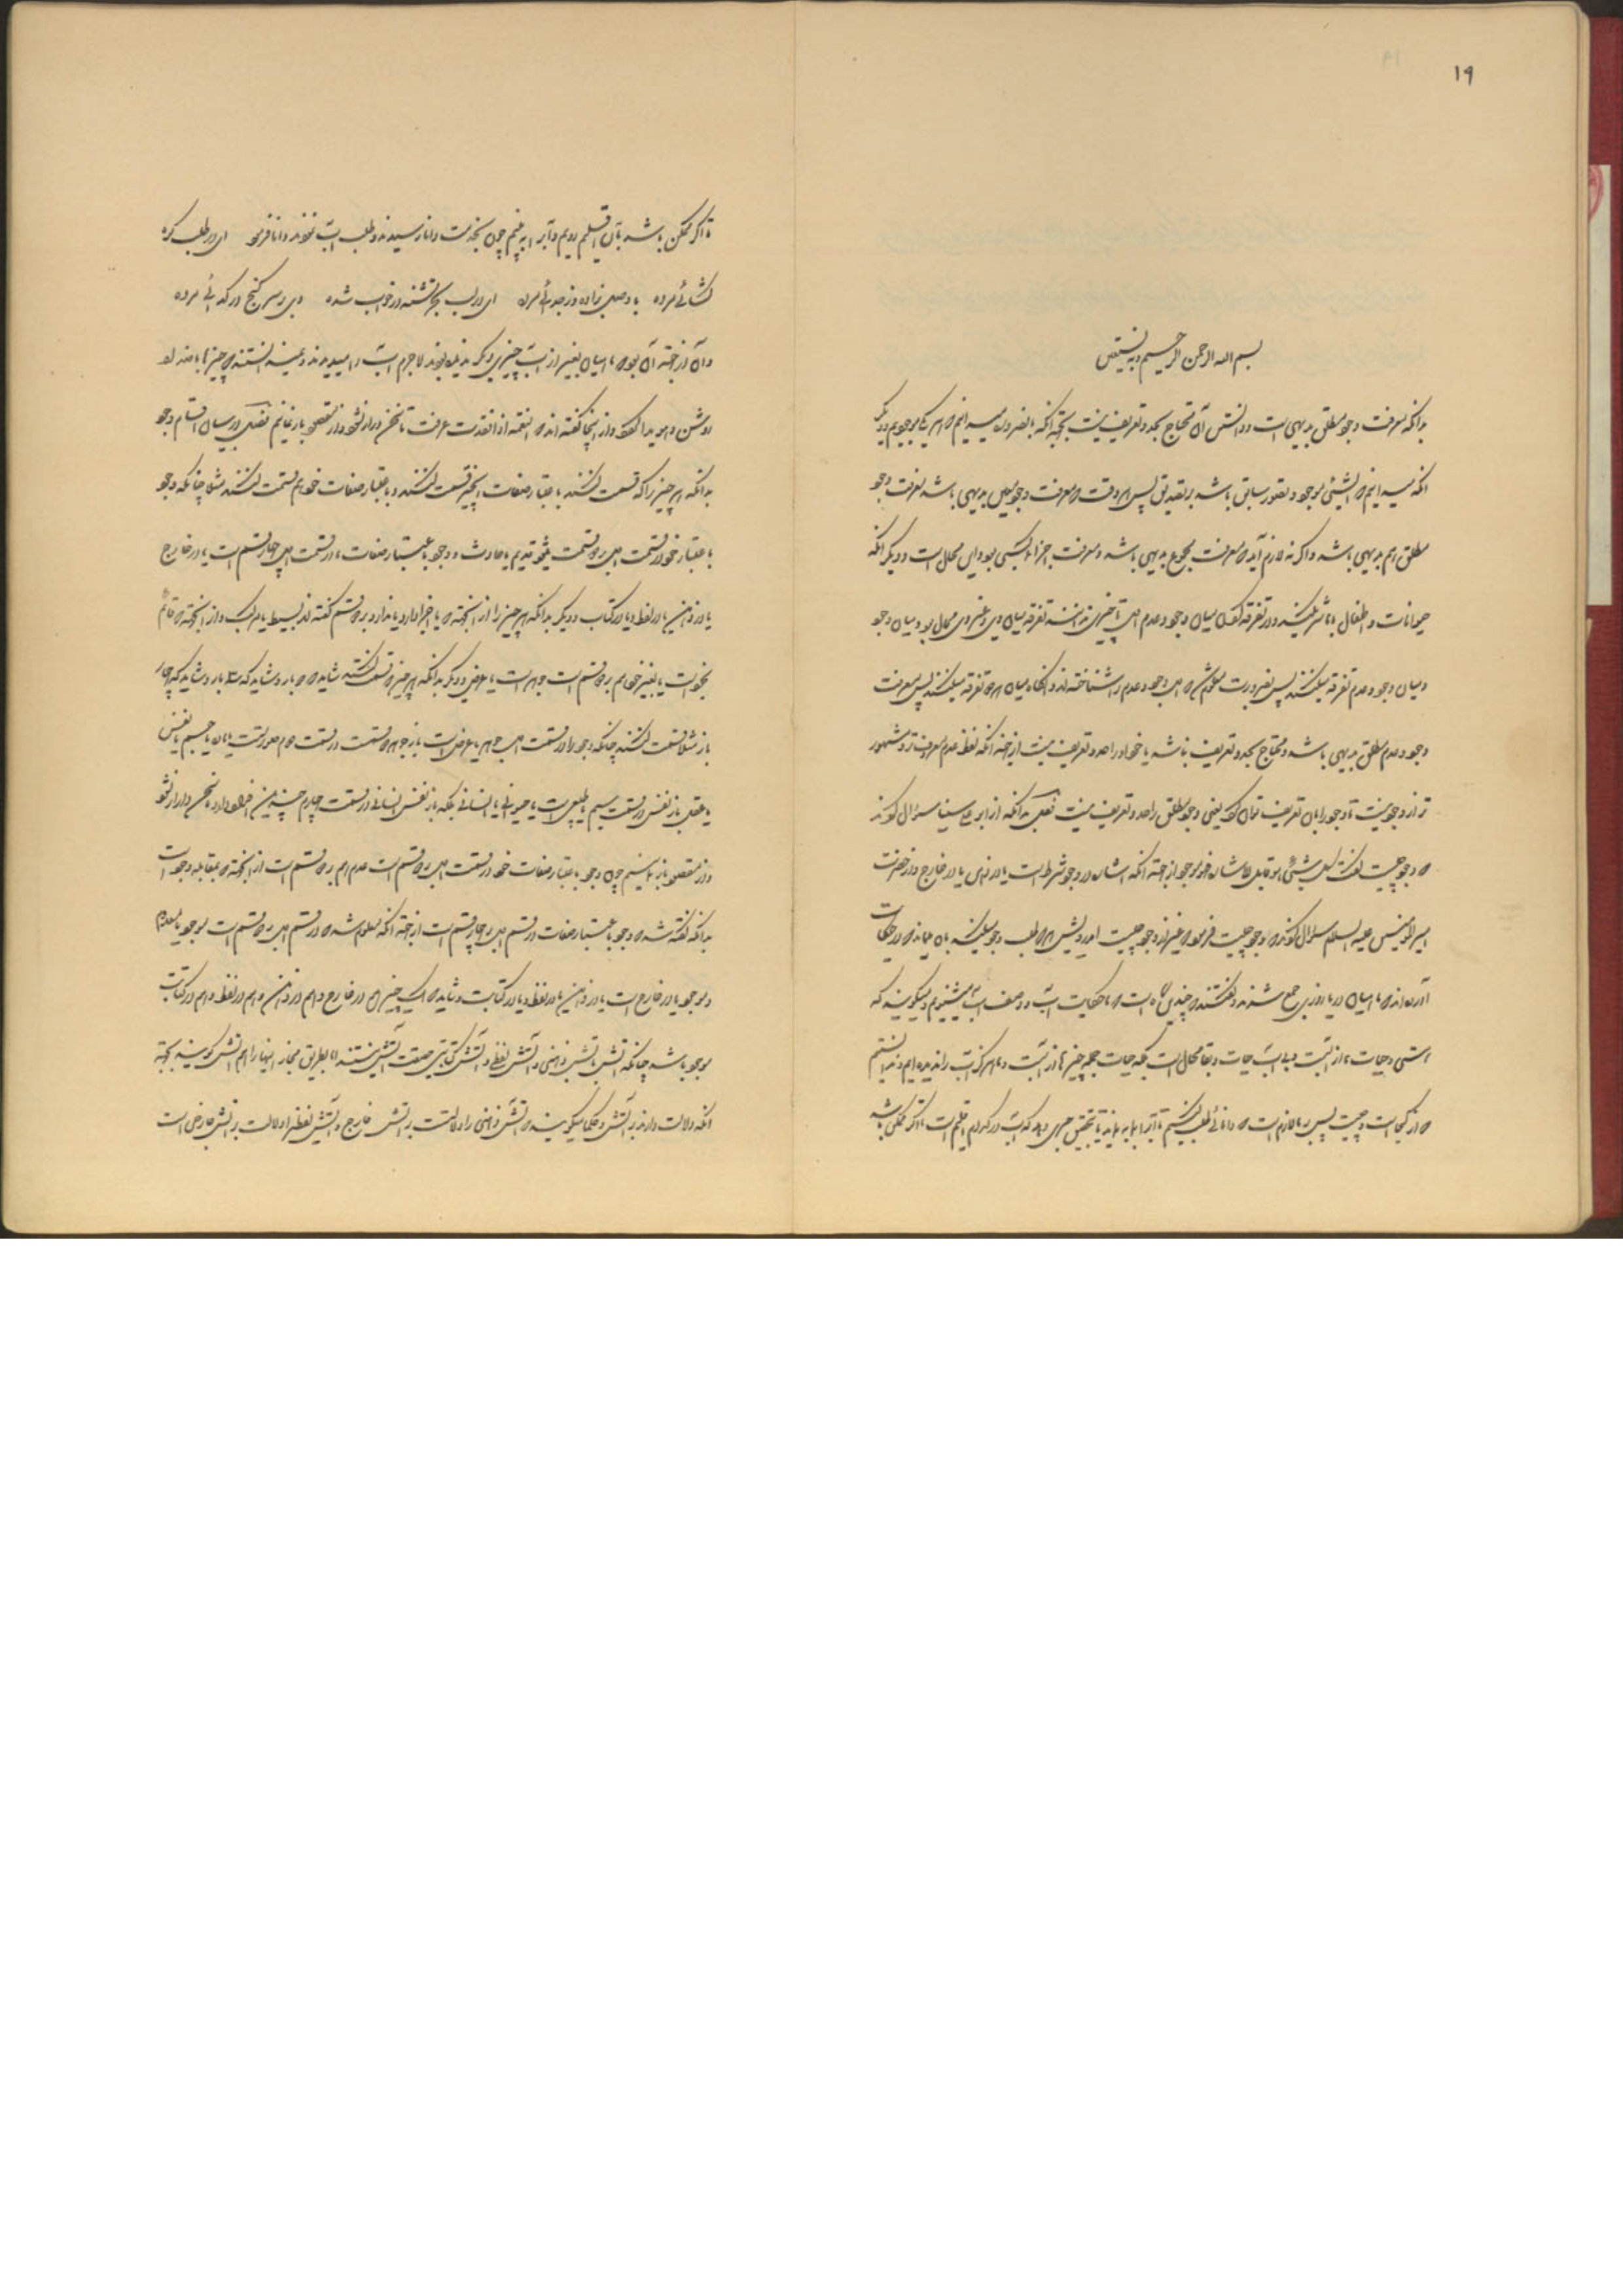 ۱۹
بسم الله الرحمن الرحیم وبه نستعین
بدانکه معرفت وجود مطلق بدیهی است و دانستن آن محتاج بحد و تعریف نیست بجهة آنکه بالضروره میدانیم که هر یکی موجودیم و دیگر
آنکه میدانیم که الشیئی موجود و تصور سابق باشد بر تصدیق پس هر وقت که معرفت وجود بدیهی باشد معرفت وجود
مطلق هم بدیهی باشد و اگر نه لازم آید که معرفت مجموع بدیهی باشد و معرفت اجزا کسبی بود و این محال است و دیگر آنکه
حیوانات و اطفال تفرقه میان وجود و عدم تا چیزی ندانند تفرقه میان وی و غیر وی محال بود و میان وجود
و میان وجود و عدم تفرقه میکنند پس بضرورت معلوم شد که وجود و عدم را شناخته‌اند و آنگاه میان هر دو تفرقه میکنند پس معرفت
وجود و عدم مطلق بدیهی باشد و محتاج بحد و تعریف نباشد یا خود او را حد و تعریف نیست از جهة آنکه لفظ عدم معروفتر و مشهور
تر از وجود نیست تا وجود را بآن تعریف توان کرد یعنی وجود مطلق را حد و تعریف نیست فصل بدانکه از ابو علی سینا سؤال کردند
که وجود چیست گفت
امیر المؤمنین علیه السلام سؤال کردند که وجود چیست فرمود که بغیر از وجود چیست ای درویش هر که طلب وجود میکند بآن میماند که در حکایت
آورده‌اند که ماهیان دریا روزی جمع شدند و گفتند که چندین گاه است که ما حکایت آب و وصف آب میشنویم و میگویند که
هستی و حیات ما از آبست و بی آب حیات و بقا محال است بلکه حیات جمله چیزها از آبست و ما هرگز آب را ندیده‌ایم و ندانستیم
که از کجاست و چیست پس بر ما لازم است که دانائی طلب کنیم تا آب را بما بنماید یا تحقیق خبری دهد که آب در کدام اقلیم است تا اگر ممکن باشد
تا اگر ممکن باشد بآن اقلیم رویم و آب را به بینیم چون بخدمت دانا رسیدند و طلب آب نمودند دانا فرمود ای در طلب گره
گشائی مرده با وصل زاده وز جدائی مرده ای در لب بحر تشنه در خواب شده وی بر سر گنج در گدائی مرده
و آن از جهة آن بود که ماهیان بغیر از آب چیزی دیگر ندیده بودند لاجرم آب را میدیدند و نمیدانستند که چیزها باضداد
روشن و هویدا گردد و از اینجا گفته‌اند که النعمة اذا فقدت عرفت تا سخن دراز نشود و از مقصود باز نمانیم فصل در بیان اقسام وجود
بدانکه هر چیز را که قسمت کنند باعتبار صفات آن چیز قسمت کنند و باعتبار صفات خود هم قسمت کنند مثلا چنانکه وجود
باعتبار خود در قسمت اول بر دو قسمت میشود قدیم یا حادث و وجود باعتبار صفات در قسمت اول چهار قسم است یا در خارج
یا در ذهن یا در لفظ و یا در کتاب و دیگر بدانکه هر چیز را از آنجهة که یا اجزا دارد یا ندارد بر دو قسم گفته‌اند بسیط یا مرکب و از آنجهة که قائم
بخود است یا بغیر خود هم بر دو قسم است جوهر است یا عرض و دیگر بدانکه هر چیز که قسمت کنند شاید که دو بار و شاید که سه بار و شاید که چهار
بار مثلا قسمت کنند چنانکه وجود را در قسمت اول جوهر یا عرض است باز جوهر در قسمت دوم جسم یا نفس
یا عقل باز نفس در قسمت سیم طبیعی است یا حیوانی یا انسانی بلکه باز نفس انسانی در قسمت چهارم افراد دارد تا سخن دراز نشود
و از مقصود باز نمانیم چون وجود باعتبار صفات خود در قسمت اول بر دو قسم است عدم هم بر دو قسم است از آنجهة که بمقابله وجود است
بدانکه گفته شد که وجود باعتبار صفات در قسم اول بر چهار قسم است از جهة آنکه معلوم شد که در قسم اول بر دو قسم است موجود یا معدوم
و موجود یا در خارج است یا در ذهن یا در لفظ و یا در کتابت و شاید که یک چیز هم در خارج و هم در ذهن و هم در لفظ و هم در کتابت
موجود باشد چنانکه آتش و آتش ذهنی و آتش لفظی و آتش کتابتی حقیقت آتش نیستند اما بطریق مجاز اینها را هم آتش گویند بجهة
آنکه دلالت دارند بر آتش و حکما میگویند که آتش ذهنی را دلالت بر آتش خارج و آتش لفظی را دلالت بر آتش خارجی است